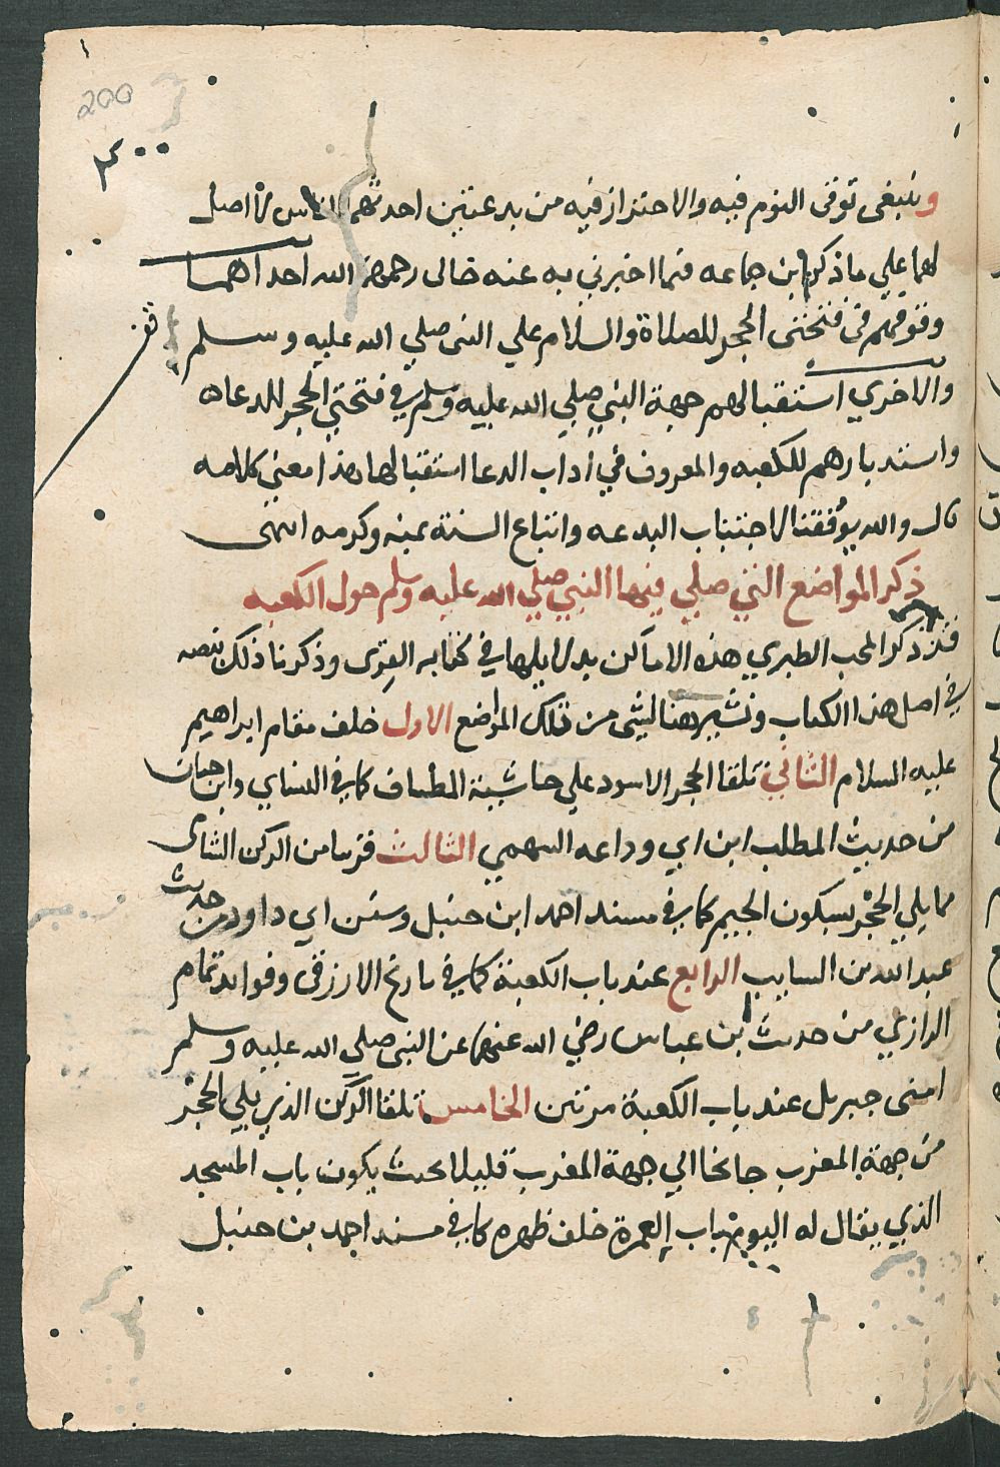 200
٢٠٠
وينبغي توقى النوم فيه والاحتراز فيه من بدعتين احدثهما الناس لا اصل
لهما علي ما ذكر ابن جماعه فيما اخبرني به عنه خالى رحمهم الله احداهما
وقوفهم في فتحتى الحجر للصلاة والسلام علي النبى صلي الله عليه وسلم
والاخري استقبالهم جهة النبي صلي الله عليه وسلم في فتحتي الحجر للدعاء
واستدبارهم للكعبه والمعروف في اداب الدعا استقبالها هذا معني كلامه
قال والله يوفقنا لاجتناب البدعه واتباع السنة بمنه وكرمه انتهى
ذكر المواضع التي صلي فيها النبي صلي الله عليه وسلم حول الكعبه
قد ذكر المحب الطبري هذه الاماكن بدلايلها في كتابه القرى وذكرنا ذلك بنصه
في اصل هذا الكتاب ونشير هنا لشي من تلك المواضع الاول خلف مقام ابراهيم
عليه السلام الثاني تلقا الحجر الاسود علي حاشية المطاف كما في النساي وابن حبان
من حديث المطلب ابن ابي وداعه السهمي الثالث قريبا من الركن الشاى
مما يلي الحجر بسكون الجيم كما في مسند احمد ابن حنبل وسنن ابي داود من حديث
عبد الله بن السايب الرابع عند باب الكعبة كما في تاريخ الازرقى وفوايد تمام
الرازي من حديث ابن عباس رضي الله عنهما عن النبى صلي الله عليه وسلم
امنى جبريل عند باب الكعبة مرتين الخامس تلقا الركن الذي يلي الحجر
من جهة المغرب جانحا الي جهة المغرب قليلا بحيث يكون باب المسجد
الذي يقال له اليوم باب العمرة خلف ظهره كما في مسند احمد بن حنبل